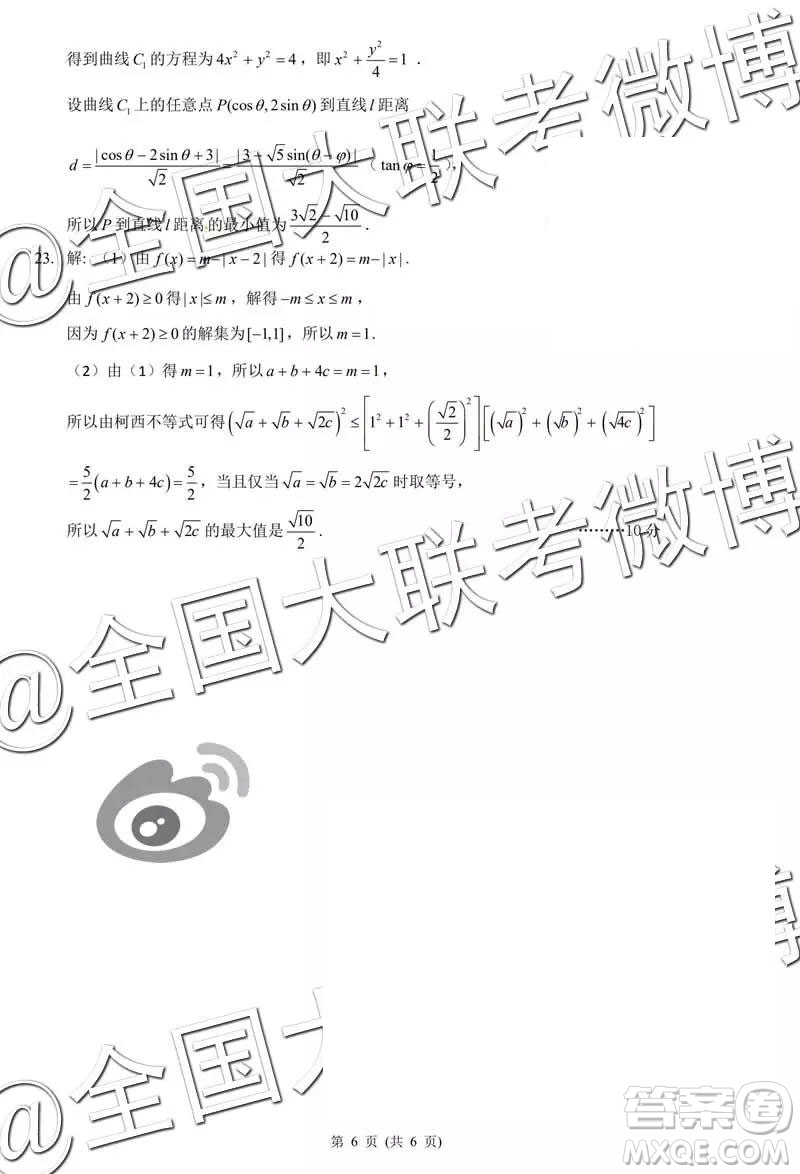 得到曲线 C₁ 的方程为 4x² + y² = 4，即 x² + y²/4 = 1 ．
设曲线 C₁ 上的任意点 P(cosθ, 2sinθ) 到直线 l 距离
d = |cosθ − 2sinθ + 3|/√2 = |3 − √5 sin(θ − φ)|/√2 （ tanφ = 1/2 ），
所以 P 到直线 l 距离的最小值为 (3√2 − √10)/2 ．
23. 解:（1）由 f(x) = m−| x − 2 | 得 f(x + 2) = m−| x | .
由 f(x + 2) ≥ 0 得 | x |≤ m，解得 −m ≤ x ≤ m，
因为 f(x + 2) ≥ 0 的解集为[−1,1]，所以 m = 1.
（2）由（1）得 m = 1，所以 a + b + 4c = m = 1，
所以由柯西不等式可得 (√a + √b + √2c)² ≤ [1² + 1² + (√2/2)²][(√a)² + (√b)² + (√4c)²]
= 5/2 (a + b + 4c) = 5/2，当且仅当 √a = √b = 2√2c 时取等号，
所以 √a + √b + √2c 的最大值是 √10/2 ． ………10 分
@全国大联考微博
@全国大联考微博
@全国大联考微博
博
答案卷
MXQE.COM
第 6 页 (共 6 页)